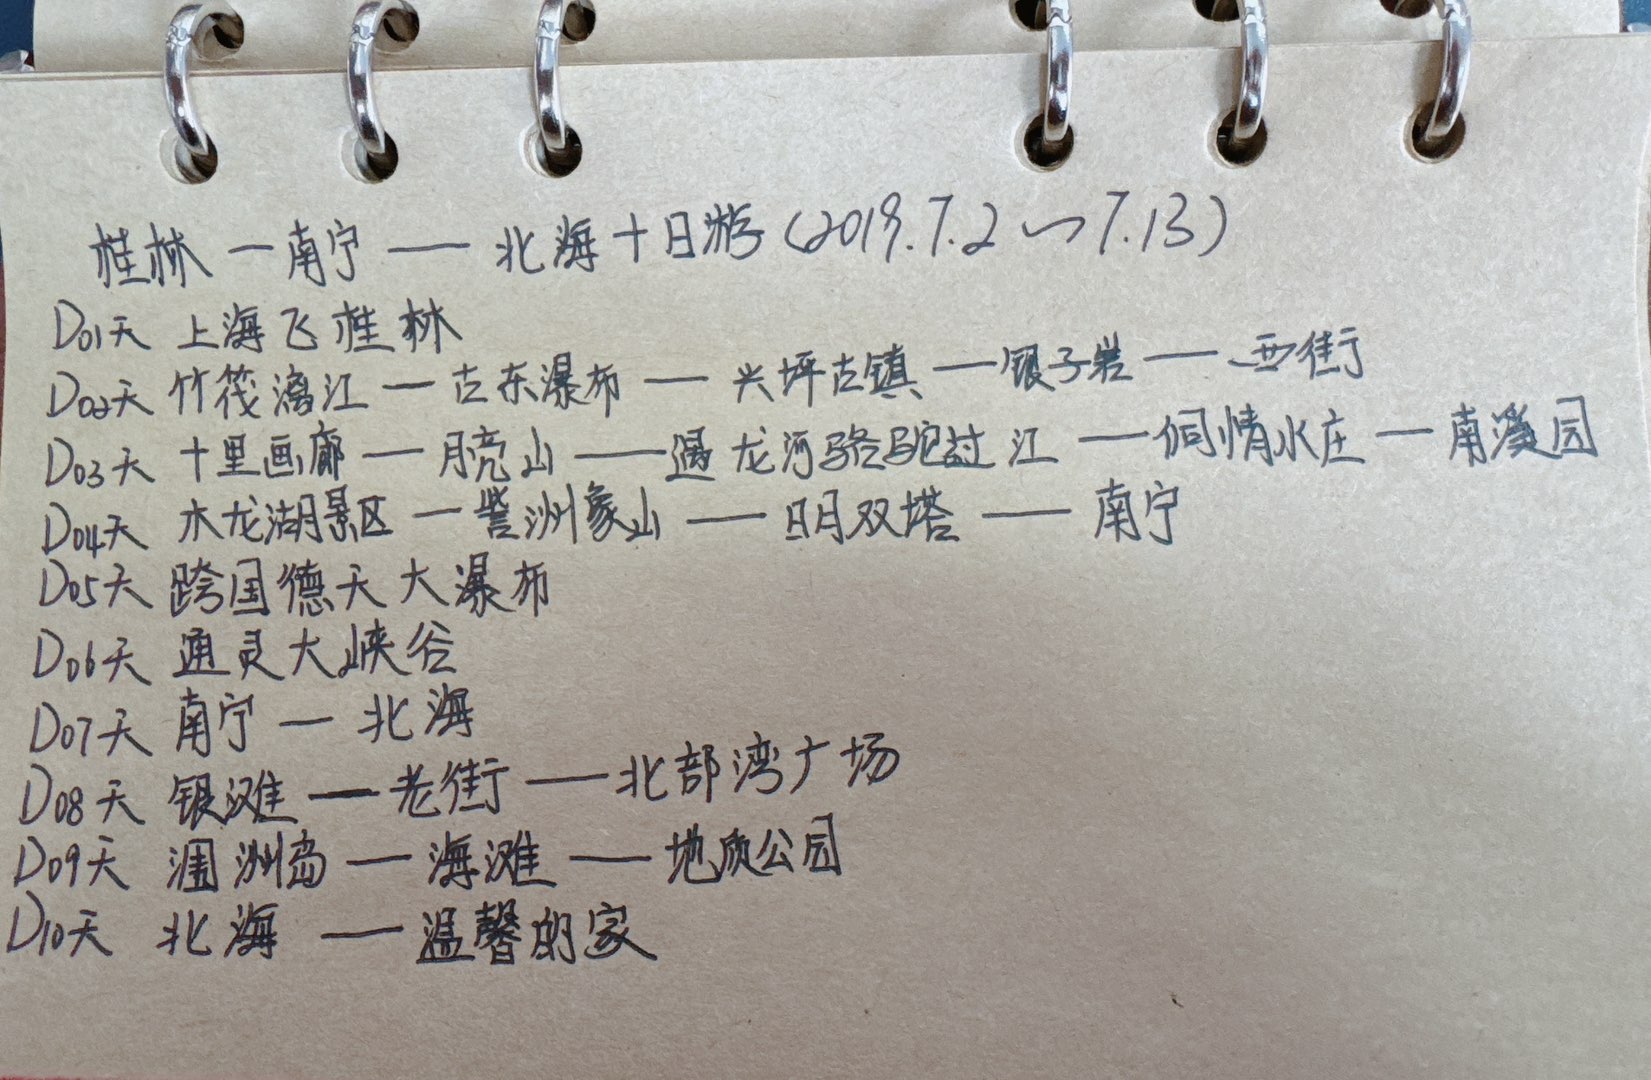 桂林一南宁——北海十日游(2019.7.2~7.13)
D01天 上海飞桂林
D02天 竹筏漓江—古东瀑布—兴坪古镇—银子岩—西街
D03天 十里画廊—月亮山——遇龙河骆驼过江—侗情水庄—南溪园
D04天 木龙湖景区—訾洲象山——日月双塔——南宁
D05天 跨国德天大瀑布
D06天 通灵大峡谷
D07天 南宁—北海
D08天 银滩—老街——北部湾广场
D09天 涠洲岛—海滩——地质公园
D10天 北海——温馨的家